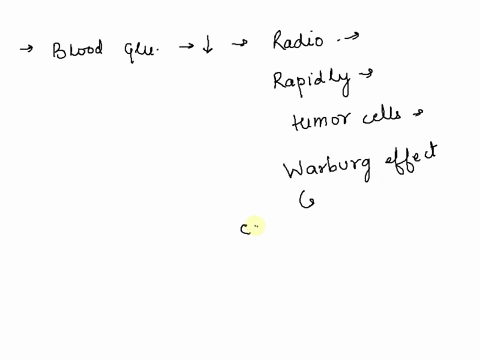 → Blood glu. → ↓ → Radio . →
Rapidly →
tumor cells →
Warburg effect
G
c